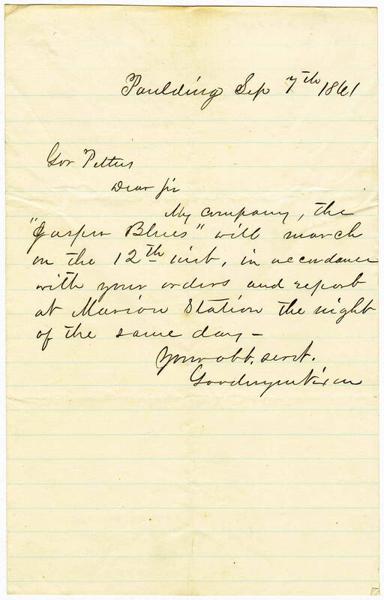 Paulding Sep 7th 1861
Gov Pettus
Dear Sir
My company, the
"Jasper Blues" will march
on the 12th inst, in accordance
with your orders and report
at Marion Station the night
of the same day –
Your obt. servt.
Goodwyn Nixon